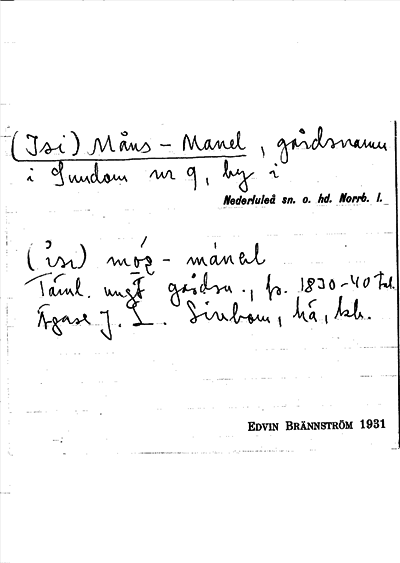 (Isi) Måns-Manel, gårdsnamn
i Sundom nr 9, by i
Nederluleå sn. o. hd. Norrb. l.
(isi) - mánel
Täml. ungt gårdsn., fr. 1830-40 tal.
Ägare J. L. Sirbom,
EDVIN BRÄNNSTRÖM 1931